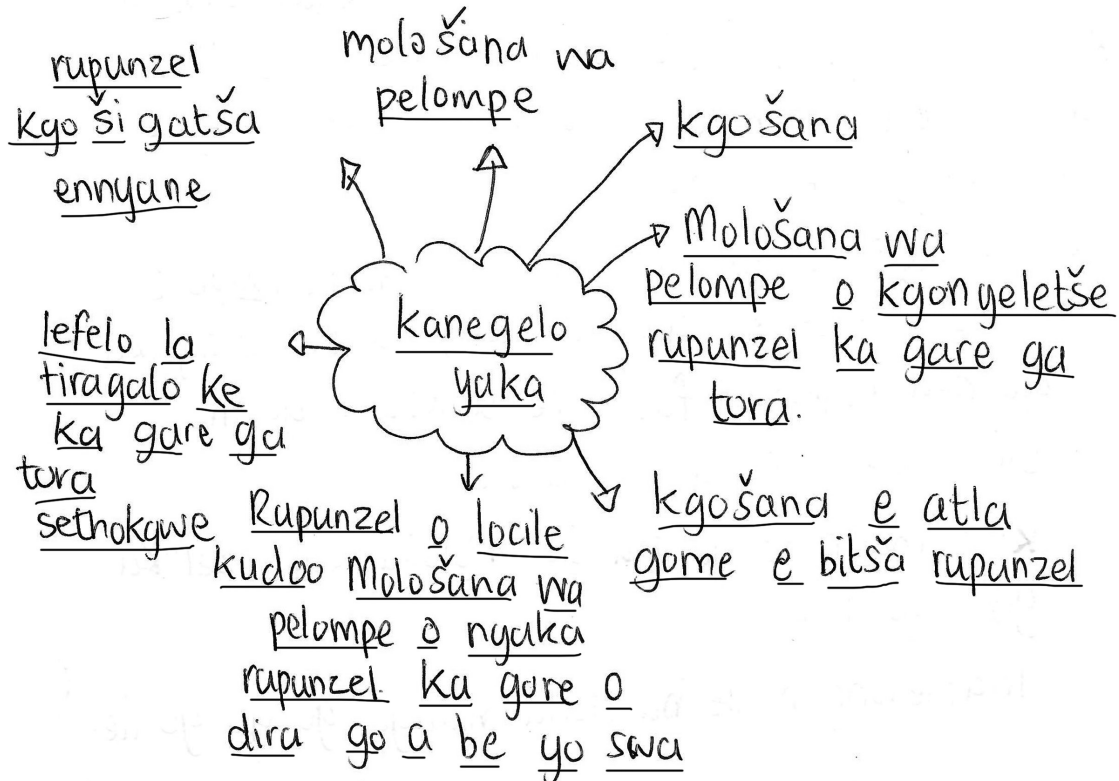 rupunzel
kgo ši gatša
ennyane
mološana wa
pelompe
kgošana
Mološana wa
pelompe o kgonyeletše
rupunzel ka gare ga
tora.
kanegelo
yaka
lefelo la
tiragalo ke
ka gare ga
tora
sethokgwe
Rupunzel o locile
kudoo Mološana wa
pelompe o nyaka
rupunzel ka gore o
dira go a be yo swa
kgošana e atla
gome e bitša rupunzel